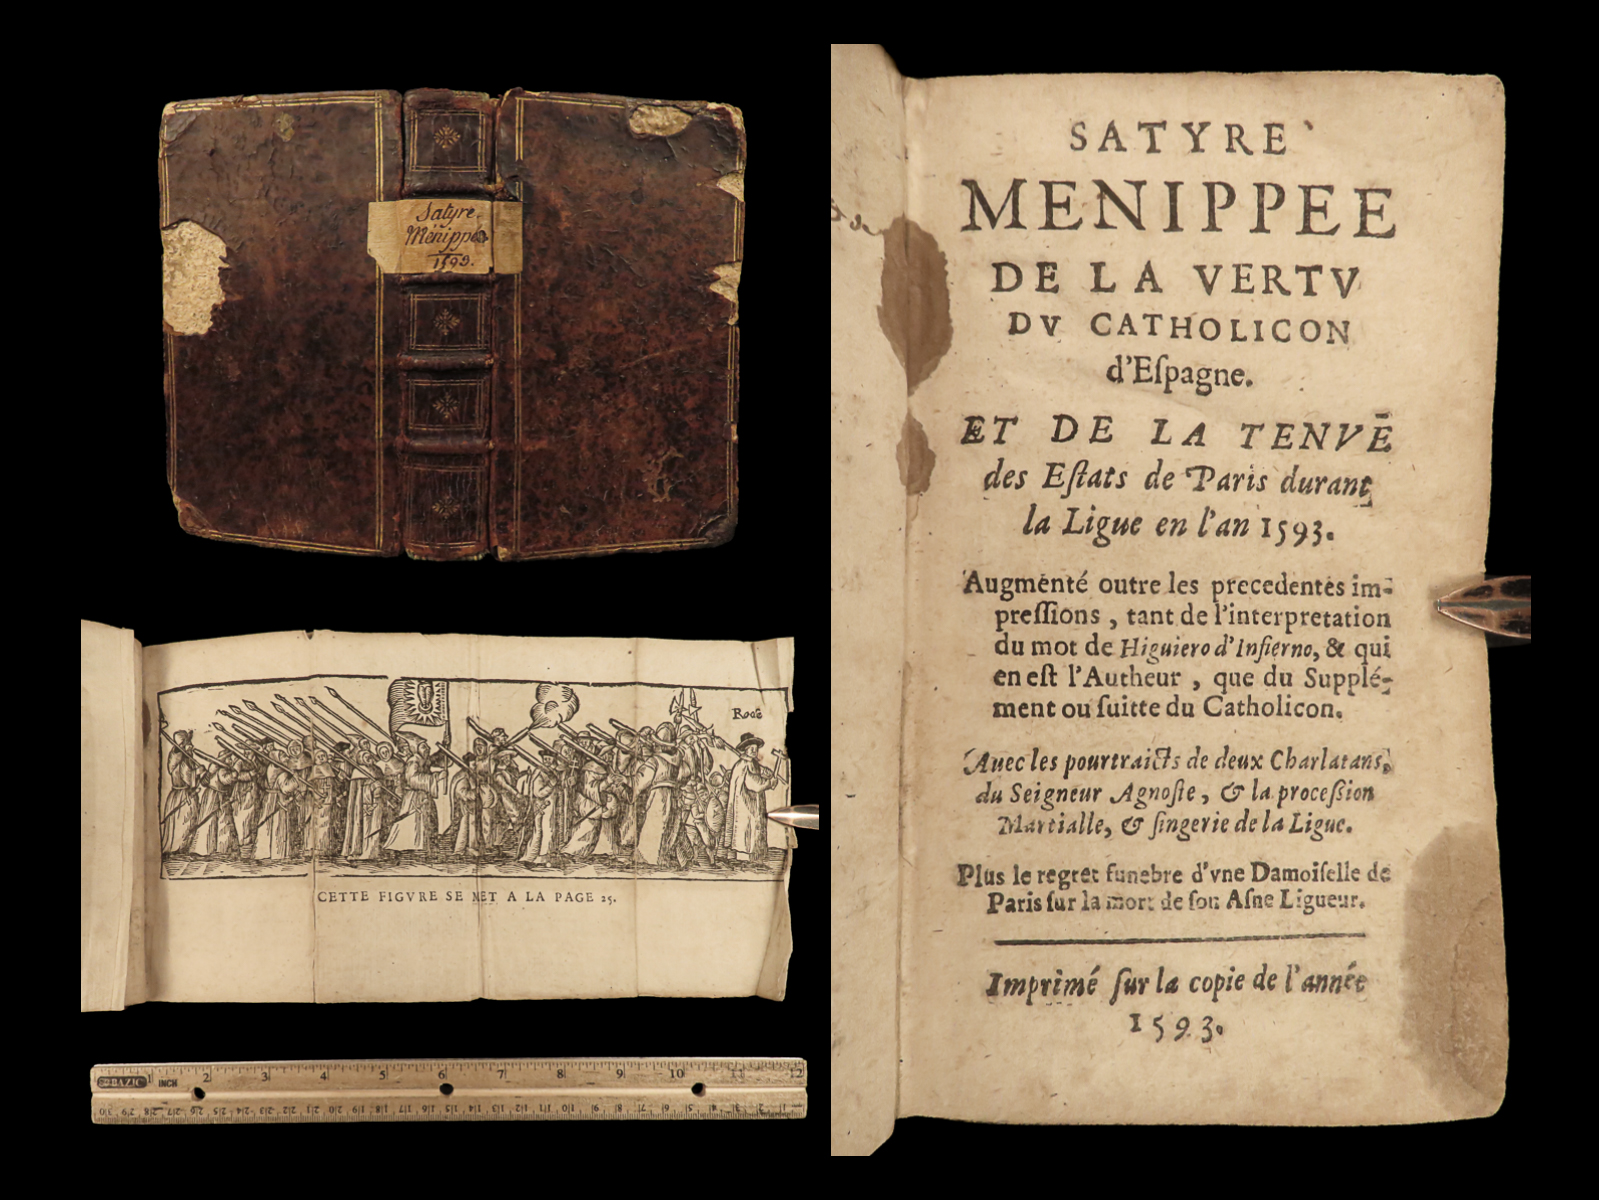 Satyre
Menippée
1593.
SATYRE
MENIPPEE
DE LA VERTV
DV CATHOLICON
d'Eſpagne.
ET DE LA TENVË
des Eſtats de Paris durant
la Ligue en l'an 1593.
Augmenté outre les precedentes im-
preſſions, tant de l'interpretation
du mot de Higuiero d'Infierno, & qui
en eſt l'Autheur, que du Supplé-
ment ou ſuitte du Catholicon.
Auec les pourtraicts de deux Charlatans,
du Seigneur Agnoſte, & la proceſſion
Martialle, & ſingerie de la Ligue.
Plus le regret funebre d'vne Damoiſelle de
Paris ſur la mort de ſon Aſne Ligueur.
Imprimé ſur la copie de l'année
1593.
Roſe
CETTE FIGVRE SE MET A LA PAGE 25.
1 INCH 2 3 4 5 6 7 8 9 10 11 12